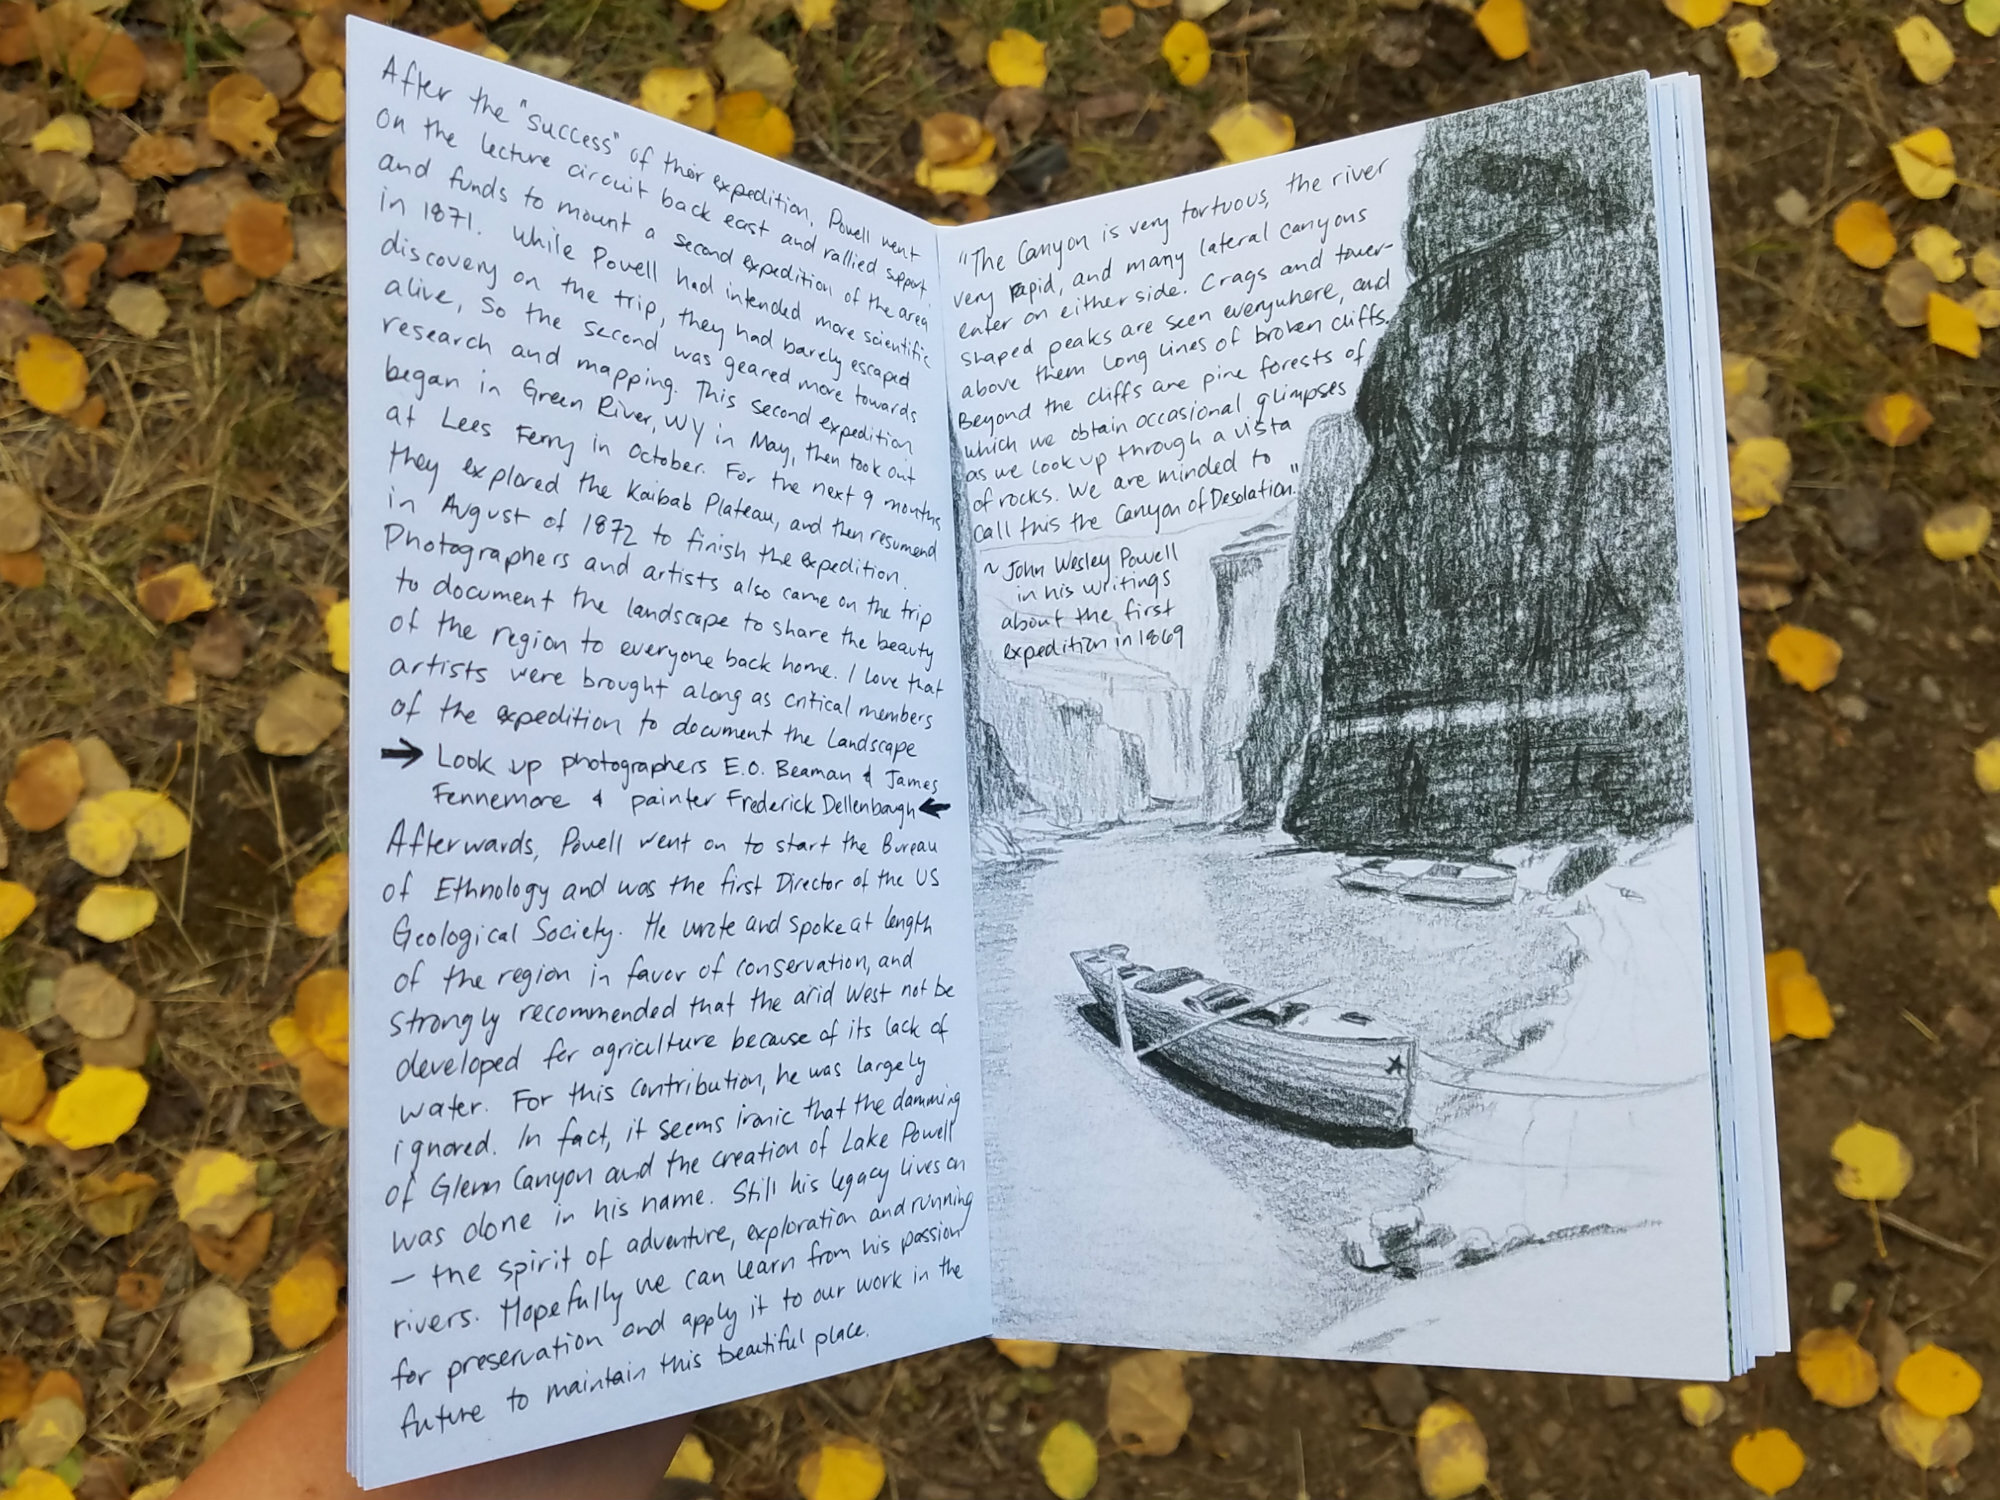 After the "success" of their expedition, Powell went
on the lecture circuit back east and rallied support
and funds to mount a second expedition of the area
in 1871. While Powell had intended more scientific
discovery on the trip, they had barely escaped
alive, so the second was geared more towards
research and mapping. This second expedition
began in Green River, WY in May, then took out
at Lees Ferry in October. For the next 9 months
they explored the Kaibab Plateau, and then resumed
in August of 1872 to finish the expedition.
Photographers and artists also came on the trip
to document the landscape to share the beauty
of the region to everyone back home. I love that
artists were brought along as critical members
of the expedition to document the landscape
→ Look up photographers E.O. Beaman & James
Fennemore & painter Frederick Dellenbaugh ←
Afterwards, Powell went on to start the Bureau
of Ethnology and was the first Director of the US
Geological Society. He wrote and spoke at length
of the region in favor of conservation, and
strongly recommended that the arid West not be
developed for agriculture because of its lack of
water. For this contribution, he was largely
ignored. In fact, it seems ironic that the damming
of Glenn Canyon and the creation of Lake Powell
was done in his name. Still his legacy lives on
— the spirit of adventure, exploration and running
rivers. Hopefully we can learn from his passion
for preservation and apply it to our work in the
future to maintain this beautiful place.
"The Canyon is very tortuous, the river
very rapid, and many lateral canyons
enter on either side. Crags and tower-
shaped peaks are seen everywhere, and
above them long lines of broken cliffs.
Beyond the cliffs are pine forests of
which we obtain occasional glimpses
as we look up through a vista
of rocks. We are minded to
call this the Canyon of Desolation."
~ John Wesley Powell
in his writings
about the first
expedition in 1869